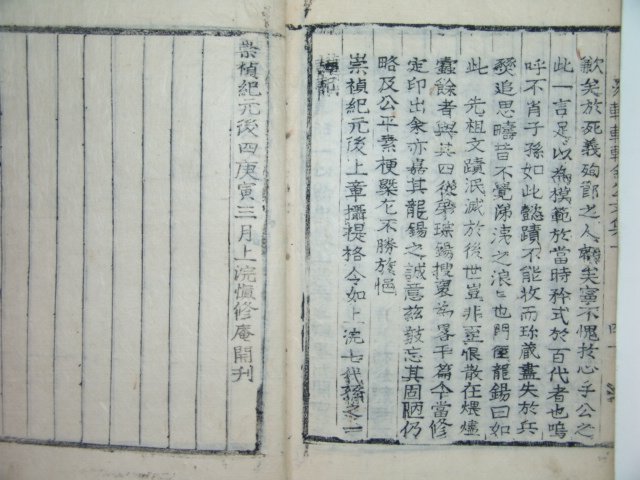 歉矣於死義殉節之人顧生寧不愧技心乎公之
此一言足以為模範於當時矜式於百代者也嗚
呼不肖子孫如此懿蹟不能收而珎藏盡失於兵
燹追思疇昔不覺涕淚之浪〻也門侄龍錫曰如
此 先祖文蹟泯滅於後世豈非至恨散在煨燼
蠹餘者與其四從弟瑞錫搜裒為畧干篇今當修
定印出余亦嘉其龍錫之誠意玆敢忘其固陋仍
略及公平素梗槩尤不勝於悒
崇禎紀元後上章攝提格令如上浣七代孫
謹記
崇禎紀元後四庚寅三月上浣愼修庵開刊